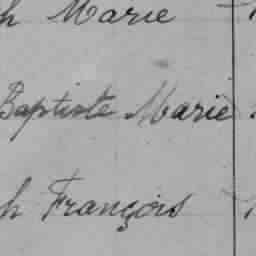 h Marie
Baptiste Marie
h François